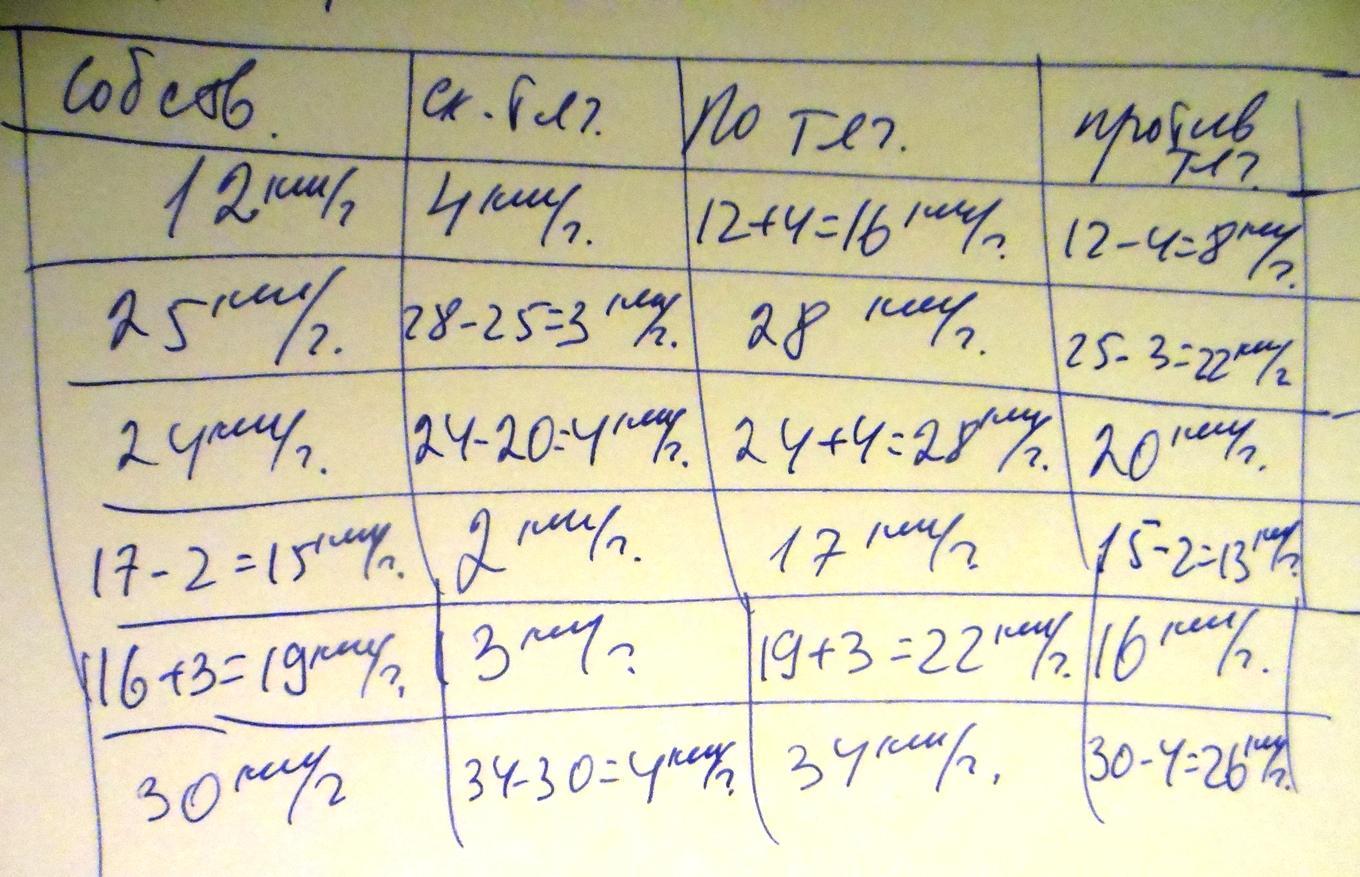 Собств. ск. теч. По теч. против теч.
12 км/ч 4 км/ч. 12+4=16 км/ч. 12-4=8 км/ч.
25 км/ч. 28-25=3 км/ч. 28 км/ч. 25-3=22 км/ч
24 км/ч. 24-20=4 км/ч. 24+4=28 км/ч. 20 км/ч.
17-2=15 км/ч. 2 км/ч. 17 км/ч 15-2=13 км/ч.
16+3=19 км/ч. 3 км/ч 19+3=22 км/ч. 16 км/ч.
30 км/ч 34-30=4 км/ч. 34 км/ч. 30-4=26 км/ч.